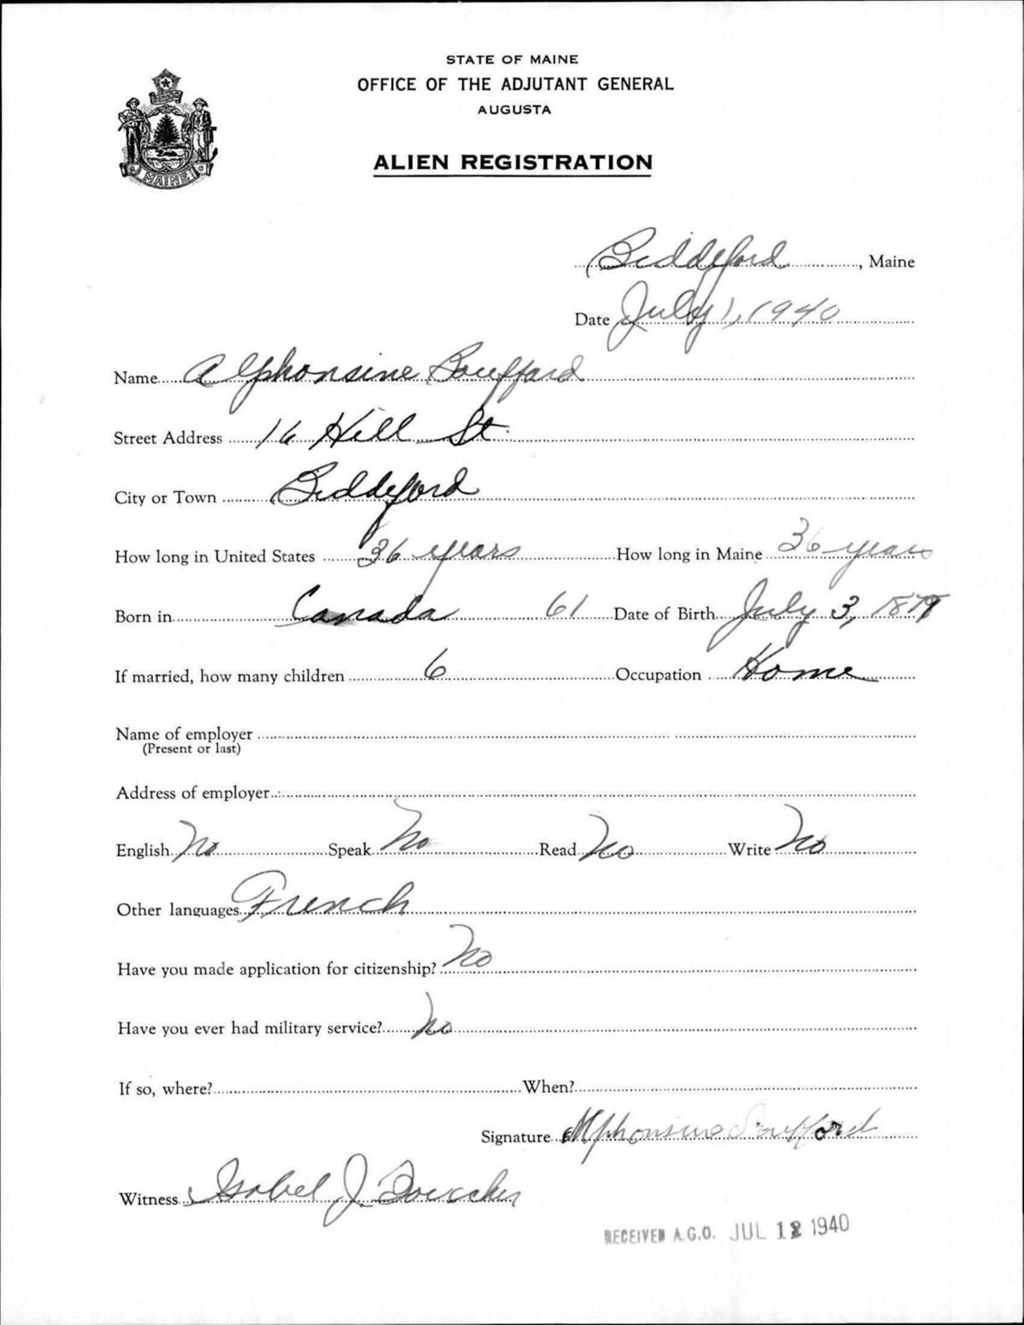 STATE OF MAINE
OFFICE OF THE ADJUTANT GENERAL
AUGUSTA
ALIEN REGISTRATION
MAINE
Biddeford, Maine
Date July 1, 1940
Name Alphonsine Bouffard
Street Address 16 Hill St.
City or Town Biddeford
How long in United States 36 years How long in Maine 36 years
Born in Canada 61 Date of Birth July 3, 1879
If married, how many children 6 Occupation Home
Name of employer
(Present or last)
Address of employer
English No Speak No Read No Write No
Other languages French
Have you made application for citizenship? No
Have you ever had military service? No
If so, where? When?
Signature Alphonsine Bouffard
Witness Isabel J.
RECEIVED A.G.O. JUL 12 1940